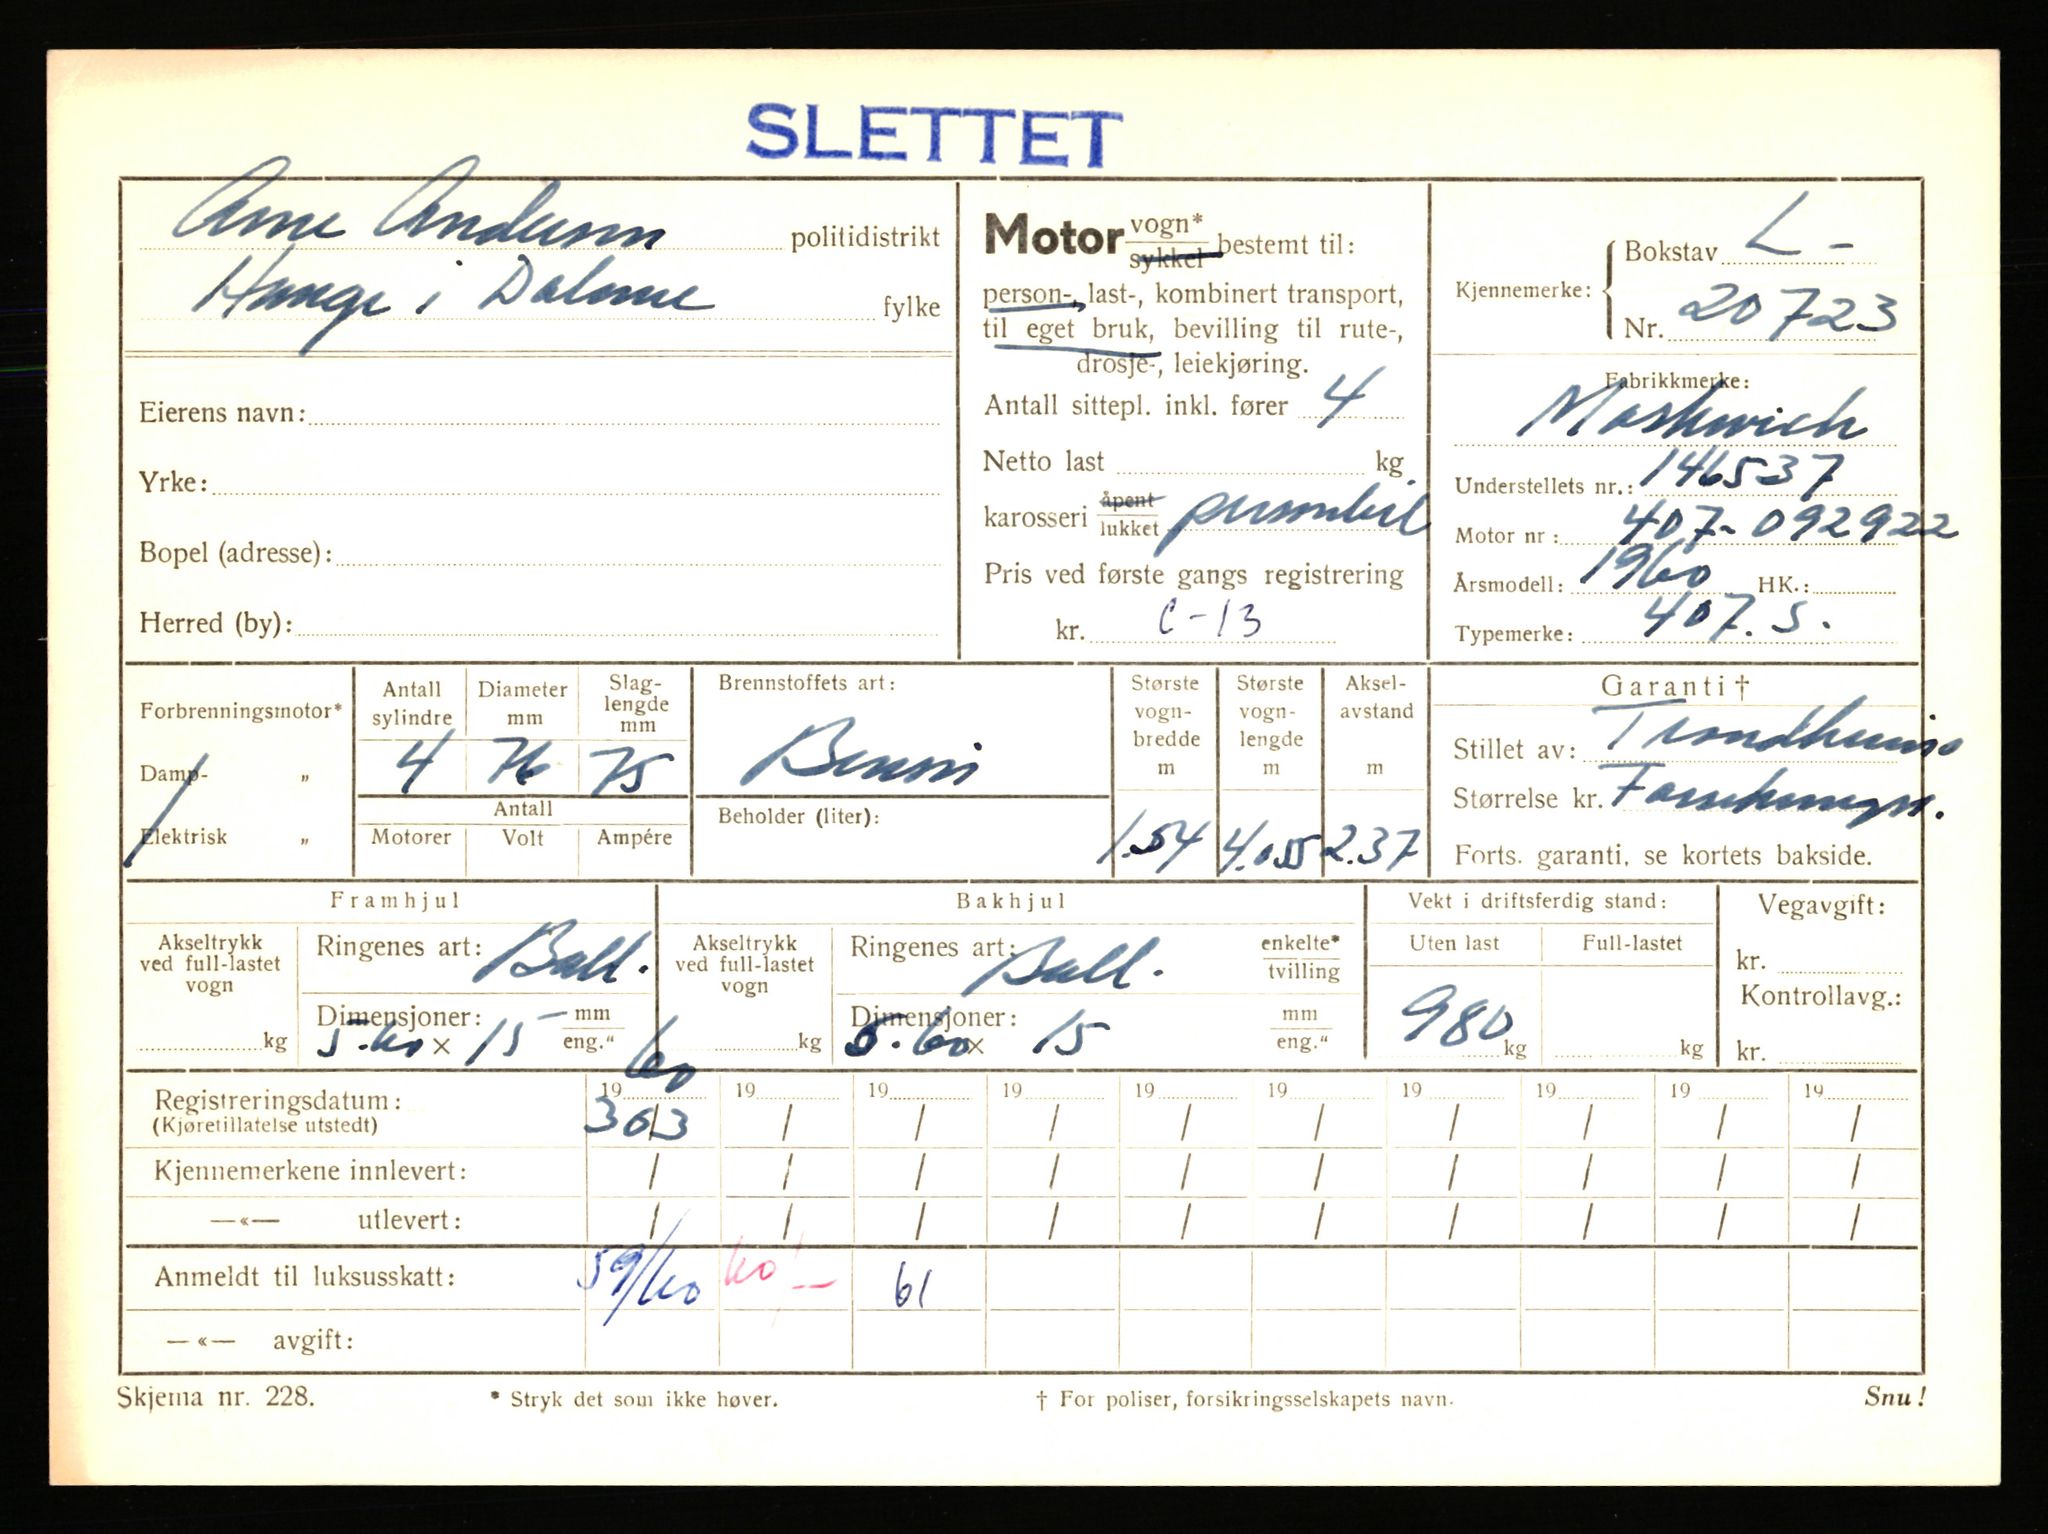 SLETTET
Arne Andersen politidistrikt
Hauge i Dalane fylke
Eierens navn:
Yrke:
Bopel (adresse):
Herred (by):
Motor vogn* sykkel bestemt til:
person-, last-, kombinert transport,
til eget bruk, bevilling til rute-,
drosje-, leiekjøring.
Antall sittepl. inkl. fører 4
Netto last kg
karosseri åpent lukket personbil
Pris ved første gangs registrering
kr. C-13
Kjennemerke: Bokstav L -
Nr. 20723
Fabrikkmerke:
Moskwich
Understellets nr.: 146537
Motor nr: 407-092922
Årsmodell: 1960 HK.:
Typemerke: 407. S.
Forbrenningsmotor*
Damp- „
Elektrisk „
Antall sylindre Diameter mm Slaglengde mm
4 76 75
Antall
Motorer Volt Ampére
Brennstoffets art:
Bensin
Beholder (liter):
Største vognbredde m
1.54
Største vognlengde m
4.055
Akselavstand m
2.37
Garanti †
Stillet av: Trondhjems
Størrelse kr. Forsikringss.
Forts. garanti, se kortets bakside.
Framhjul
Akseltrykk ved full-lastet vogn
kg
Ringenes art: Ball.
Dimensjoner: mm
5.60 x 15 eng."
Bakhjul
Akseltrykk ved full-lastet vogn
kg
Ringenes art: Ball. enkelte* tvilling
Dimensjoner: mm
5.60 x 15 eng."
Vekt i driftsferdig stand:
Uten last Full-lastet
980 kg kg
Vegavgift:
kr.
Kontrollavg.:
kr.
Registreringsdatum: 1960 19 19 19 19 19 19 19 19 19
(Kjøretillatelse utstedt) 30/3 / / / / / / / / /
Kjennemerkene innlevert: / / / / / / / / / /
—«— utlevert: / / / / / / / / / /
Anmeldt til luksusskatt: 59/60 60 — 61
—«— avgift:
Skjema nr. 228. * Stryk det som ikke høver. † For poliser, forsikringsselskapets navn. Snu!